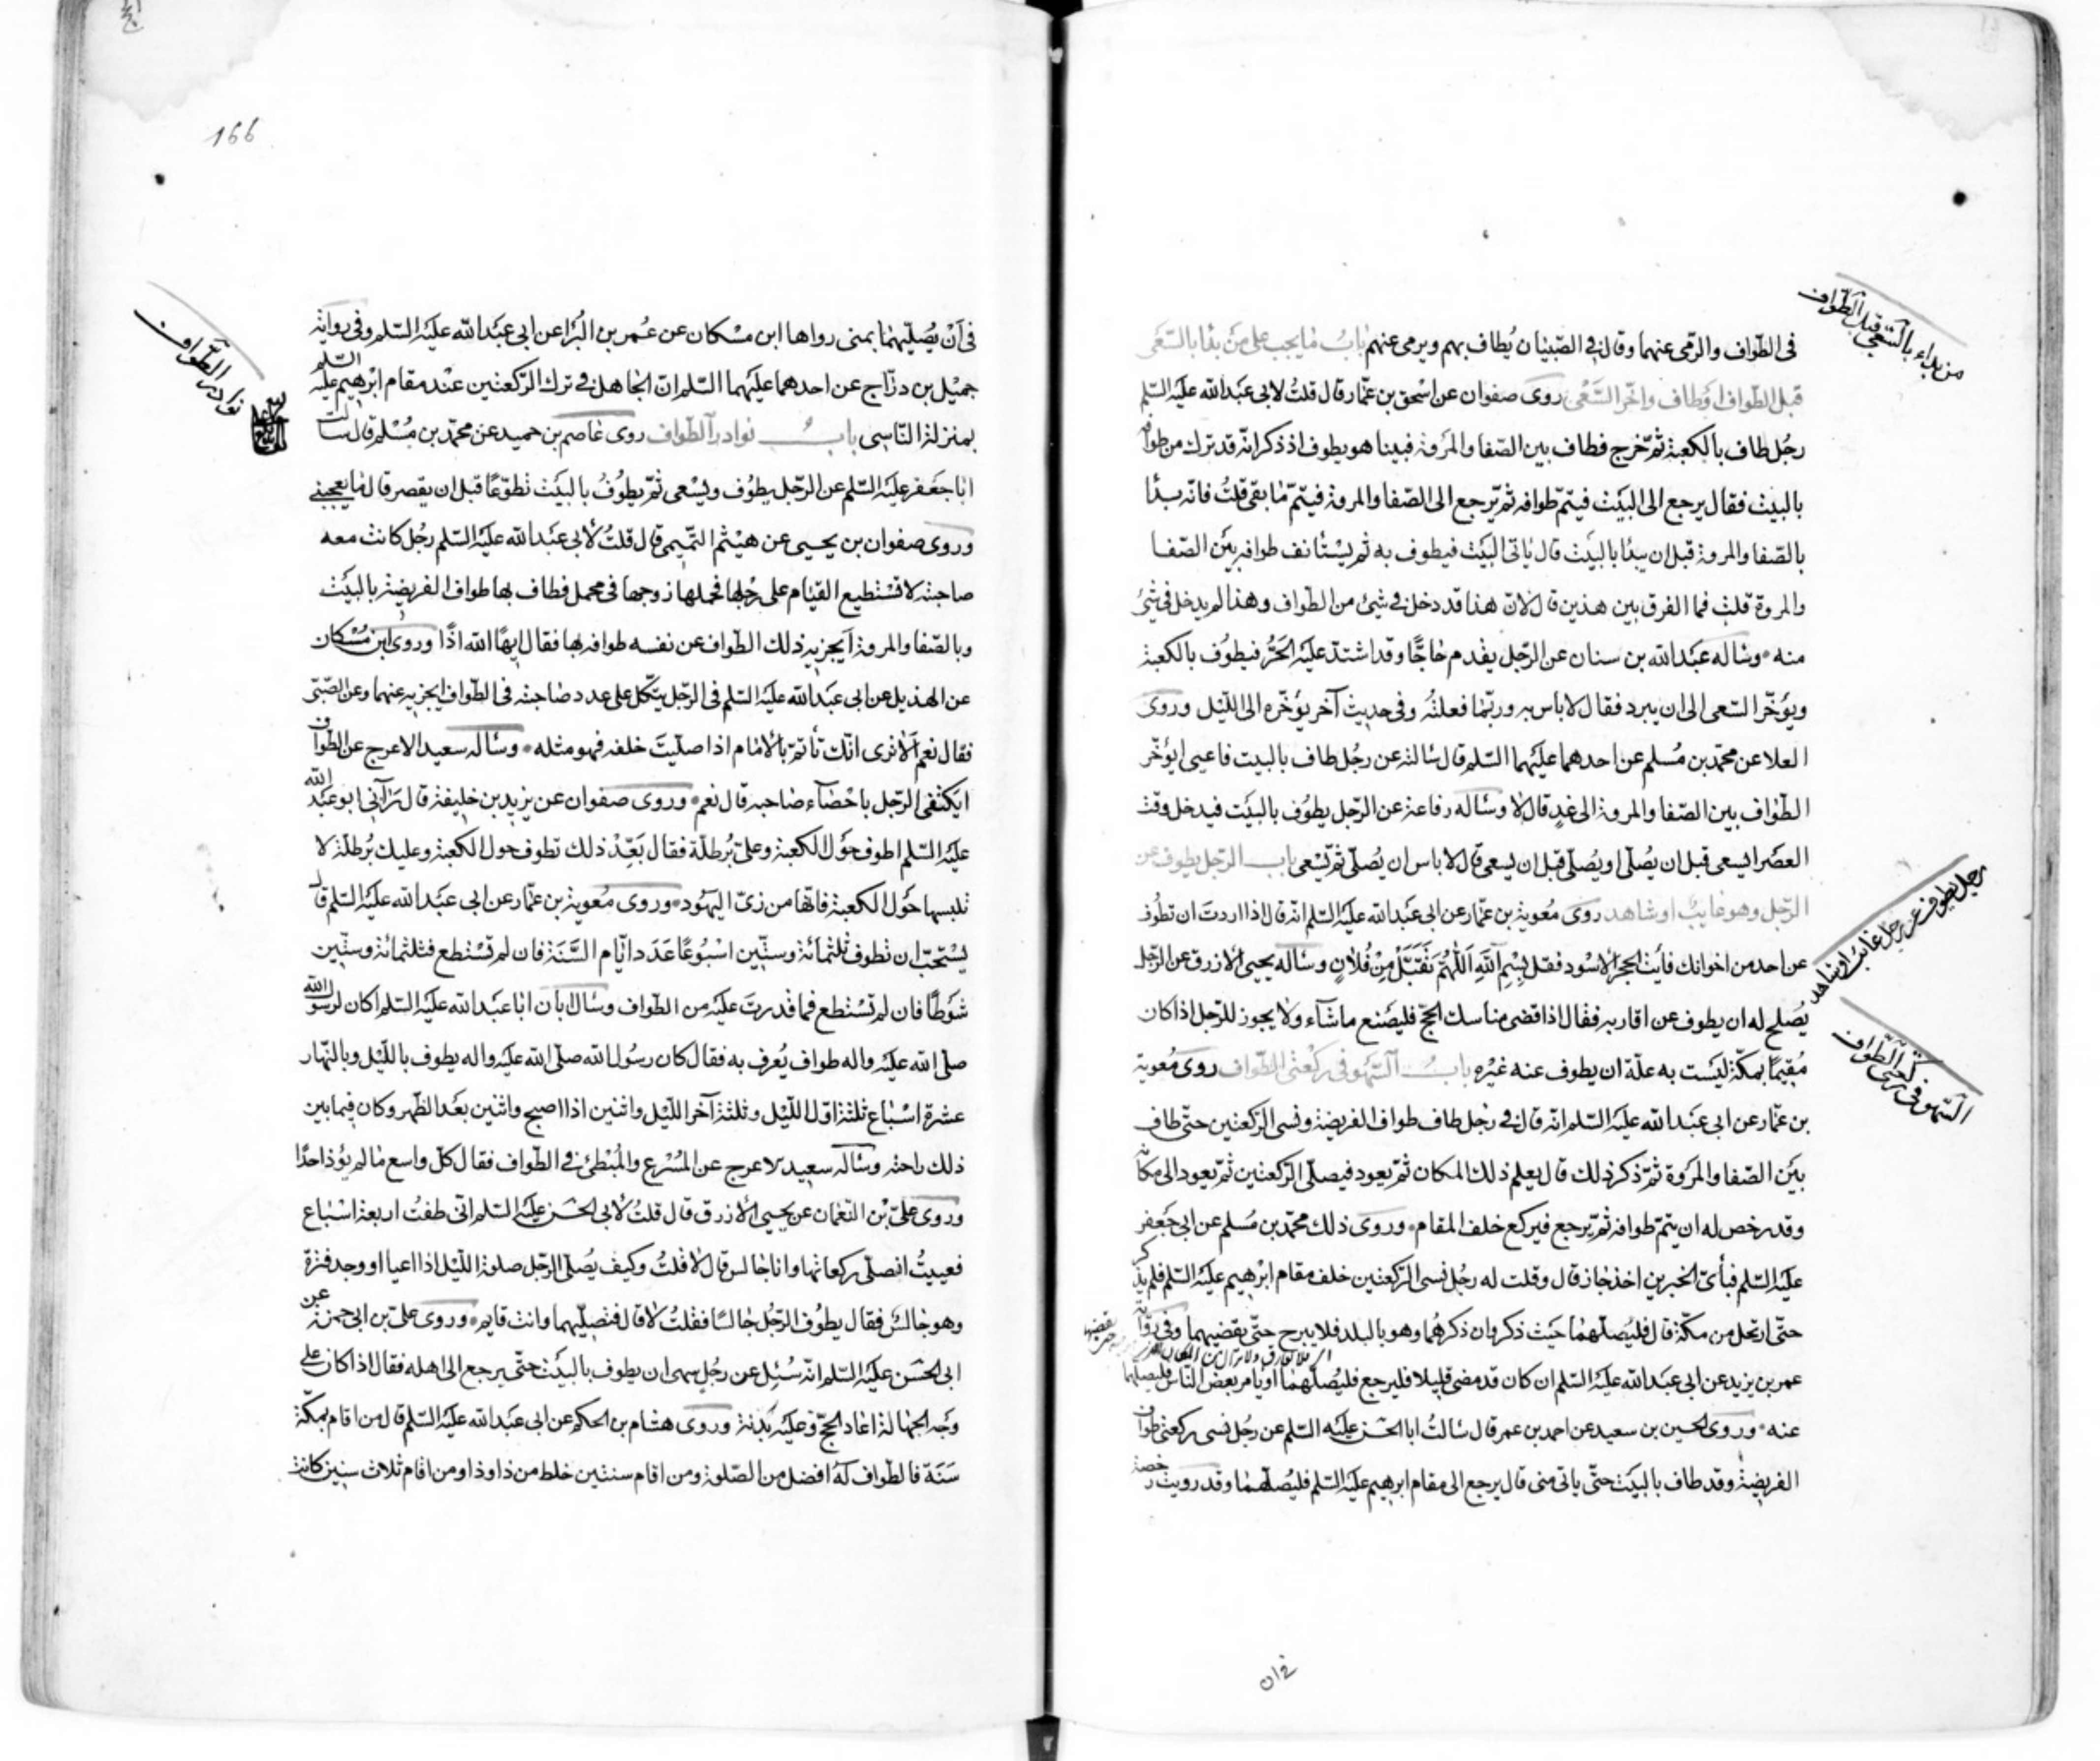 فى الطّواف والرّمى عنهما وقال فى الصّبيان يُطاف بهم ويرمى عنهم بابُ ما يجب على من بدأ بالسّعى
قبل الطّواف او طاف واخّر السّعى روى صفوان عن اسحق بن عمّار قال قلتُ لابى عبد الله عليه السّلم
رجُل طاف بالكعبة ثمّ خرج فطاف بين الصّفا والمروة فبينا هو يطوف اذ ذكر انّه قد ترك من طوافه
بالبيت فقال يرجع الى البيت فيتمّ طوافه ثمّ يرجع الى الصّفا والمروة فيتمّ ما بقى قلتُ فانّه بدأ
بالصّفا والمروة قبل ان يبدأ بالبيت قال ياتى البيت فيطوف به ثم يستأنف طوافه بين الصّفا
والمروة قلت فما الفرق بين هذين قال لانّ هذا قد دخل فى شىء من الطّواف وهذا لم يدخل فى شىء
منه وسأله عبد الله بن سنان عن الرّجل يقدم حاجّا وقد اشتدّ عليه الحَرُّ فيطوف بالكعبة
ويؤخّر السّعى الى ان يبرد فقال لا بأس به وربّما فعلتُه وفى حديث آخر يؤخّره الى اللّيل وروى
العلا عن محمّد بن مُسلم عن احدهما عليهما السّلم قال سالته عن رجُل طاف بالبيت فاعيى ايؤخّر
الطّواف بين الصّفا والمروة الى غدٍ قال لا وسأله رفاعة عن الرّجل يطوف بالبيت فيدخل وقت
العصر ايسعى قبل ان يُصلّى او يُصلّى قبل ان يسعى قال لا باس ان يُصلّى ثمّ يسعى باب الرّجل يطوف عن
الرّجل وهو غايبٌ او شاهد روى مُعوية بن عمّار عن ابى عبد الله عليه السّلم انّه قال اذا اردت ان تطُوف
عن احد من اخوانك فأيت الحجر الاسود فقل بسم الله اللّهمّ تقبّل من فُلانٍ وسأله يحيى الازرق عن الرّجل
يُصلح له ان يطوف عن اقاربه فقال اذا قضى مناسك الحجّ فليصنع ما شآء ولا يجوز للرّجل اذا كان
مُقيمًا بمكّة ليست به علّة ان يطوف عنه غيره بابُ السّهو فى ركعتى الطّواف روى مُعوية
بن عمّار عن ابى عبد الله عليه السّلم انّه قال فى رجُل طاف طواف الفريضة ونسى الرّكعتين حتّى طاف
بين الصّفا والمروة ثمّ ذكر ذلك قال يعلم ذلك المكان ثمّ يعود فيصلّى الرّكعتين ثمّ يعود الى مكانه
وقد رخص له ان يتمّ طوافه ثمّ يرجع فيركع خلف المقام وروى ذلك محمّد بن مُسلم عن ابى جعفر
عليه السّلم فبأىّ الخبرين اخذ جاز قال وقلت له رجُل نسى الرّكعتين خلف مقام ابرهيم عليه السّلم فلم يذكر
حتّى ارتحل من مكّة قال فليُصلّهما حيث ذكر وان ذكرهُما وهو بالبلد فلا يبرح حتّى يقضيهما وفى رواية
عمر بن يزيد عن ابى عبد الله عليه السّلم ان كان قد مضى قليلا فليرجع فليُصلّهما او يأمر بعض النّاس فليصلّهما
عنه وروى الحسين بن سعيد عن احمد بن عمر قال سألتُ ابا الحسن عليه السّلم عن رجُل نسى ركعتى طواف
الفريضة وقد طاف بالبيت حتّى ياتى منى قال يرجع الى مقام ابرهيم عليه السّلم فليُصلّهما وقد رويت رخصة
من بداء بالسّعى قبل الطّواف
رجل يطوف عن رجل غائب او شاهد
السّهو فى ركعتى الطّواف
فى ان
166
فى أنْ يُصلّيهما بمنى رواها ابن مسكان عن عُمر بن البُرا عن ابى عبد الله عليه السّلم وفى رواية
جميل بن درّاج عن احدهما عليهما السّلم انّ الجاهل فى ترك الرّكعتين عند مقام ابرهيم عليه السّلم
بمنزلة النّاسى بابُ نوادر الطّواف روى عاصم بن حميد عن محمّد بن مُسلم قال سالت
ابا جعفر عليه السّلم عن الرّجل يطوف ويسعى ثمّ يطوفُ بالبيت تطوّعًا قبل ان يقصر قال ما يعجبنى
وروى صفوان بن يحيى عن هيثم التّميمى قال قلتُ لأبى عبد الله عليه السّلم رجُل كانت معه
صاحبته لا تستطيع القيام على رجلها فحملها زوجها فى محمل فطاف بها طواف الفريضة بالبيت
وبالصّفا والمروة أيجزيه ذلك الطّواف عن نفسه طوافه بها فقال ايهًا الله اذًا وروى ابن مُسكان
عن الهذيل عن ابى عبد الله عليه السّلم فى الرّجل يتّكل على عدد صاحبته فى الطّواف ايجزيه عنهما وعن الصّبىّ
فقال نعم ألا ترى انّك تأتمّ بالامام اذا صلّيتَ خلفه فهو مثله وسأله سعيد الاعرج عن الطّواف
ايكتفى الرّجل باحصاء صاحبه قال نعم وروى صفوان عن يزيد بن خليفة قال رآنى ابو عبد الله
عليه السّلم اطوف حول الكعبة وعلىّ بُرطلّة فقال بَعْدَ ذلك تطوف حول الكعبة وعليك بُرطلّة لا
تلبسها حول الكعبة فانّها من زىّ اليهود وروى مُعوية بن عمّار عن ابى عبد الله عليه السّلم قال
يستحبّ ان تطوف ثلثمائة وستّين اسبُوعًا عدد ايّام السّنة فان لم تستطع فثلثمائة وستّين
شوطًا فان لم تستطع فما قدرت عليه من الطّواف وسأل ابان ابا عبد الله عليه السّلم اكان لرسول الله
صلّى الله عليه واله طواف يُعرف به فقال كان رسُول الله صلّى الله عليه واله يطوف باللّيل وبالنّهار
عشرة اسباع ثلثة اوّل اللّيل وثلثة آخر اللّيل واثنين اذا اصبح واثنين بعد الظّهر وكان فيما بين
ذلك راحته وسأله سعيد لاعرج عن المُسرع والمُبطئ فى الطّواف فقال كلّ واسع ما لم يؤذ احدًا
وروى علىّ بن النّعمان عن يحيى الأزرق قال قلتُ لأبى الحسن عليه السّلم انّى طفتُ اربعة اسباع
فعييتُ افصلّى ركعاتها وانا جالس قال لا قلتُ وكيف يُصلّى الرّجل صلوة اللّيل اذا اعيا او وجد فترة
وهو جالسٌ فقال يطُوف الرّجُل جالسًا فقلتُ لا قال فتصلّيهما وانت قايم وروى علىّ بن ابى حمزة عن
ابى الحسن عليه السّلم انّه سُئل عن رجُل سهى ان يطوف بالبيت حتّى يرجع الى اهله فقال اذا كان على
وجه الجهالة اعاد الحجّ وعليه بدنة وروى هشام بن الحكم عن ابى عبد الله عليه السّلم قال من اقام بمكّة
سَنَة فالطّواف له افضل من الصّلوة ومن اقام سنتين خلط من ذا وذا ومن اقام ثلاث سنين كانت
نوادر الطّواف